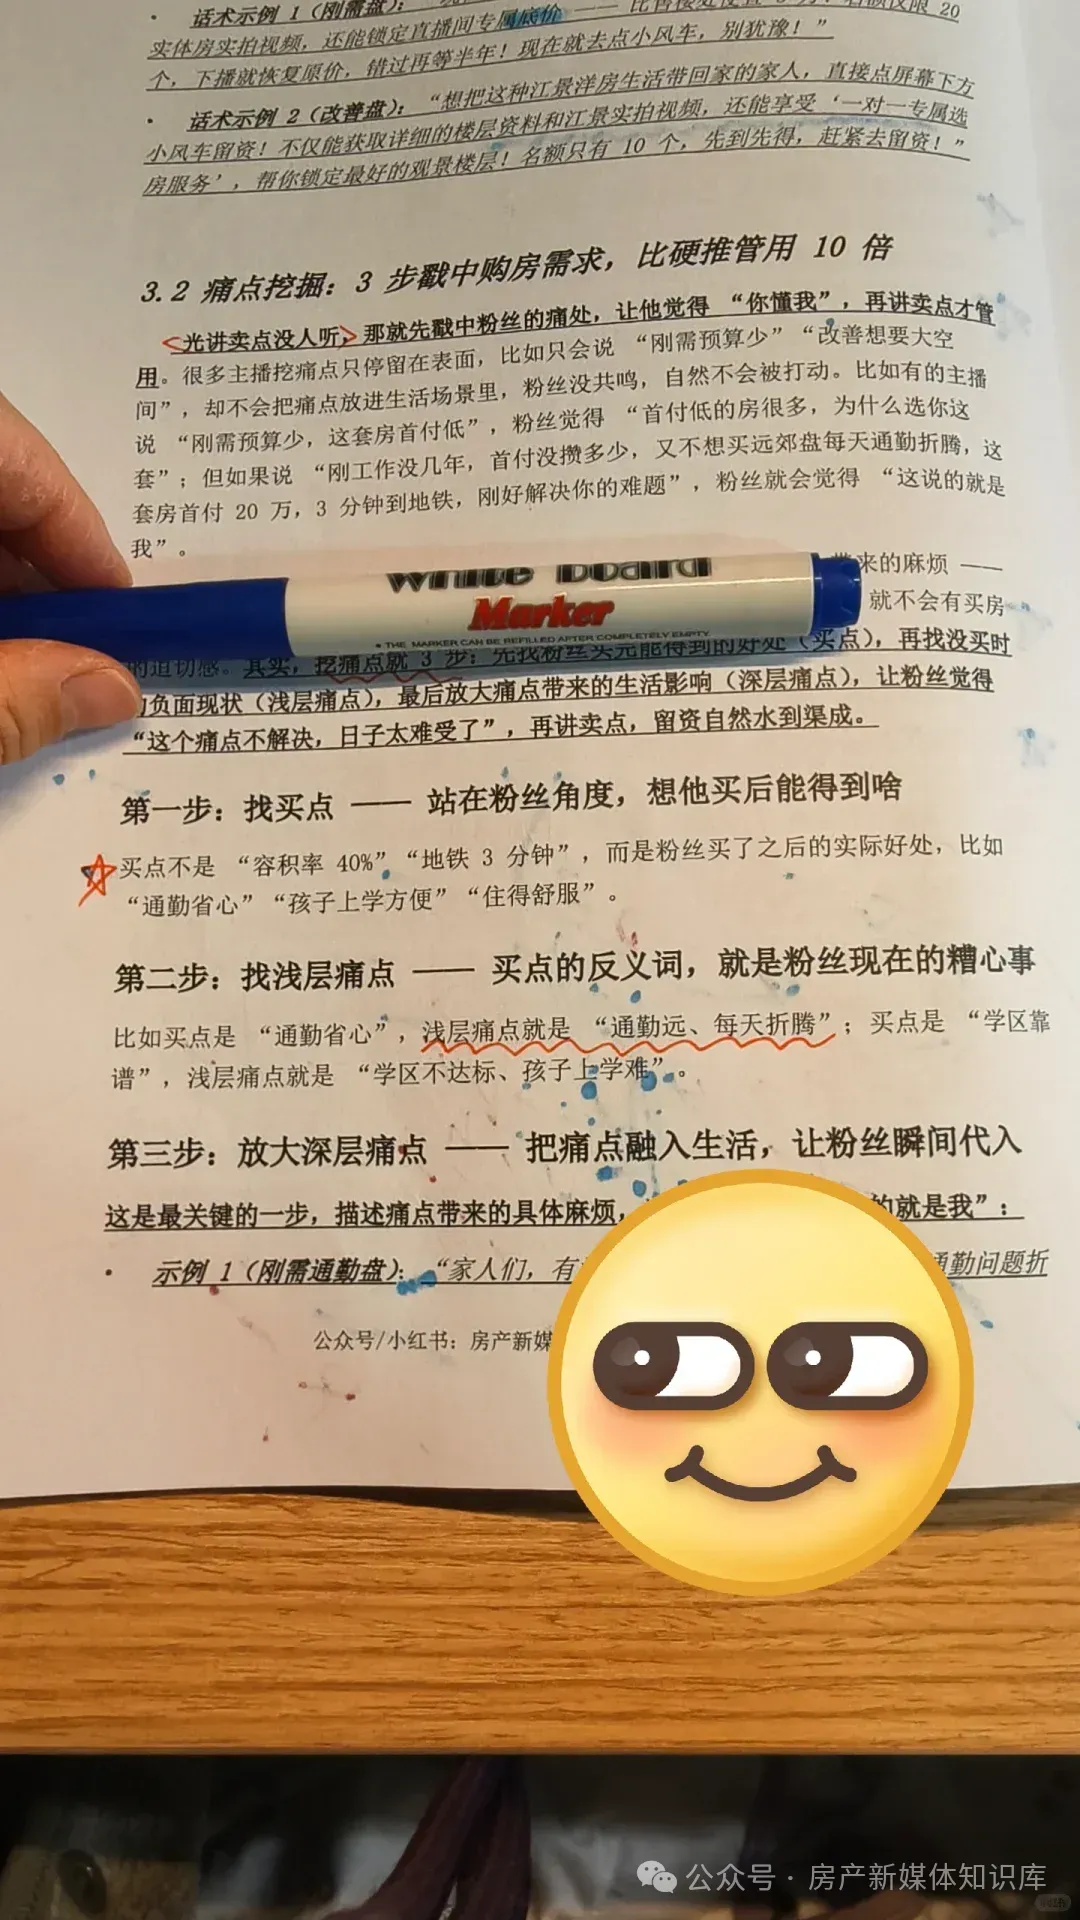 · 话术示例 1（刚需盘）：
实体房实拍视频，还能锁定直播间专属底价 —— 比售楼处便宜 3 万！名额仅限 20
个，下播就恢复原价，错过再等半年！现在就去点小风车，别犹豫！”
· 话术示例 2（改善盘）：“想把这种江景洋房生活带回家的家人，直接点屏幕下方
小风车留资！不仅能获取详细的楼层资料和江景实拍视频，还能享受‘一对一专属选
房服务’，帮你锁定最好的观景楼层！名额只有 10 个，先到先得，赶紧去留资！”
3.2 痛点挖掘：3 步戳中购房需求，比硬推管用 10 倍
光讲卖点没人听，那就先戳中粉丝的痛处，让他觉得“你懂我”，再讲卖点才管
用。很多主播挖痛点只停留在表面，比如只会说“刚需预算少”“改善想要大空
间”，却不会把痛点放进生活场景里，粉丝没共鸣，自然不会被打动。比如有的主播
说“刚需预算少，这套房首付低”，粉丝觉得“首付低的房很多，为什么选你这
套”；但如果说“刚工作没几年，首付没攒多少，又不想买远郊盘每天通勤折腾，这
套房首付 20 万，3 分钟到地铁，刚好解决你的难题”，粉丝就会觉得“这说的就是
我”。
带来的麻烦 ——
就不会有买房
的迫切感。其实，挖痛点就 3 步：先找粉丝买完能得到的好处（买点），再找没买时
负面现状（浅层痛点），最后放大痛点带来的生活影响（深层痛点），让粉丝觉得
“这个痛点不解决，日子太难受了”，再讲卖点，留资自然水到渠成。
第一步：找买点 —— 站在粉丝角度，想他买后能得到啥
买点不是“容积率 40%”“地铁 3 分钟”，而是粉丝买了之后的实际好处，比如
“通勤省心”“孩子上学方便”“住得舒服”。
第二步：找浅层痛点 —— 买点的反义词，就是粉丝现在的糟心事
比如买点是“通勤省心”，浅层痛点就是“通勤远、每天折腾”；买点是“学区靠
谱”，浅层痛点就是“学区不达标、孩子上学难”。
第三步：放大深层痛点 —— 把痛点融入生活，让粉丝瞬间代入
这是最关键的一步，描述痛点带来的具体麻烦，的就是我”：
· 示例 1（刚需通勤盘）：“家人们，有 通勤问题折
公众号/小红书：房产新媒
White Board
Marker
• THE MARKER CAN BE REFILLED AFTER COMPLETELY EMPTY.
公众号 · 房产新媒体知识库